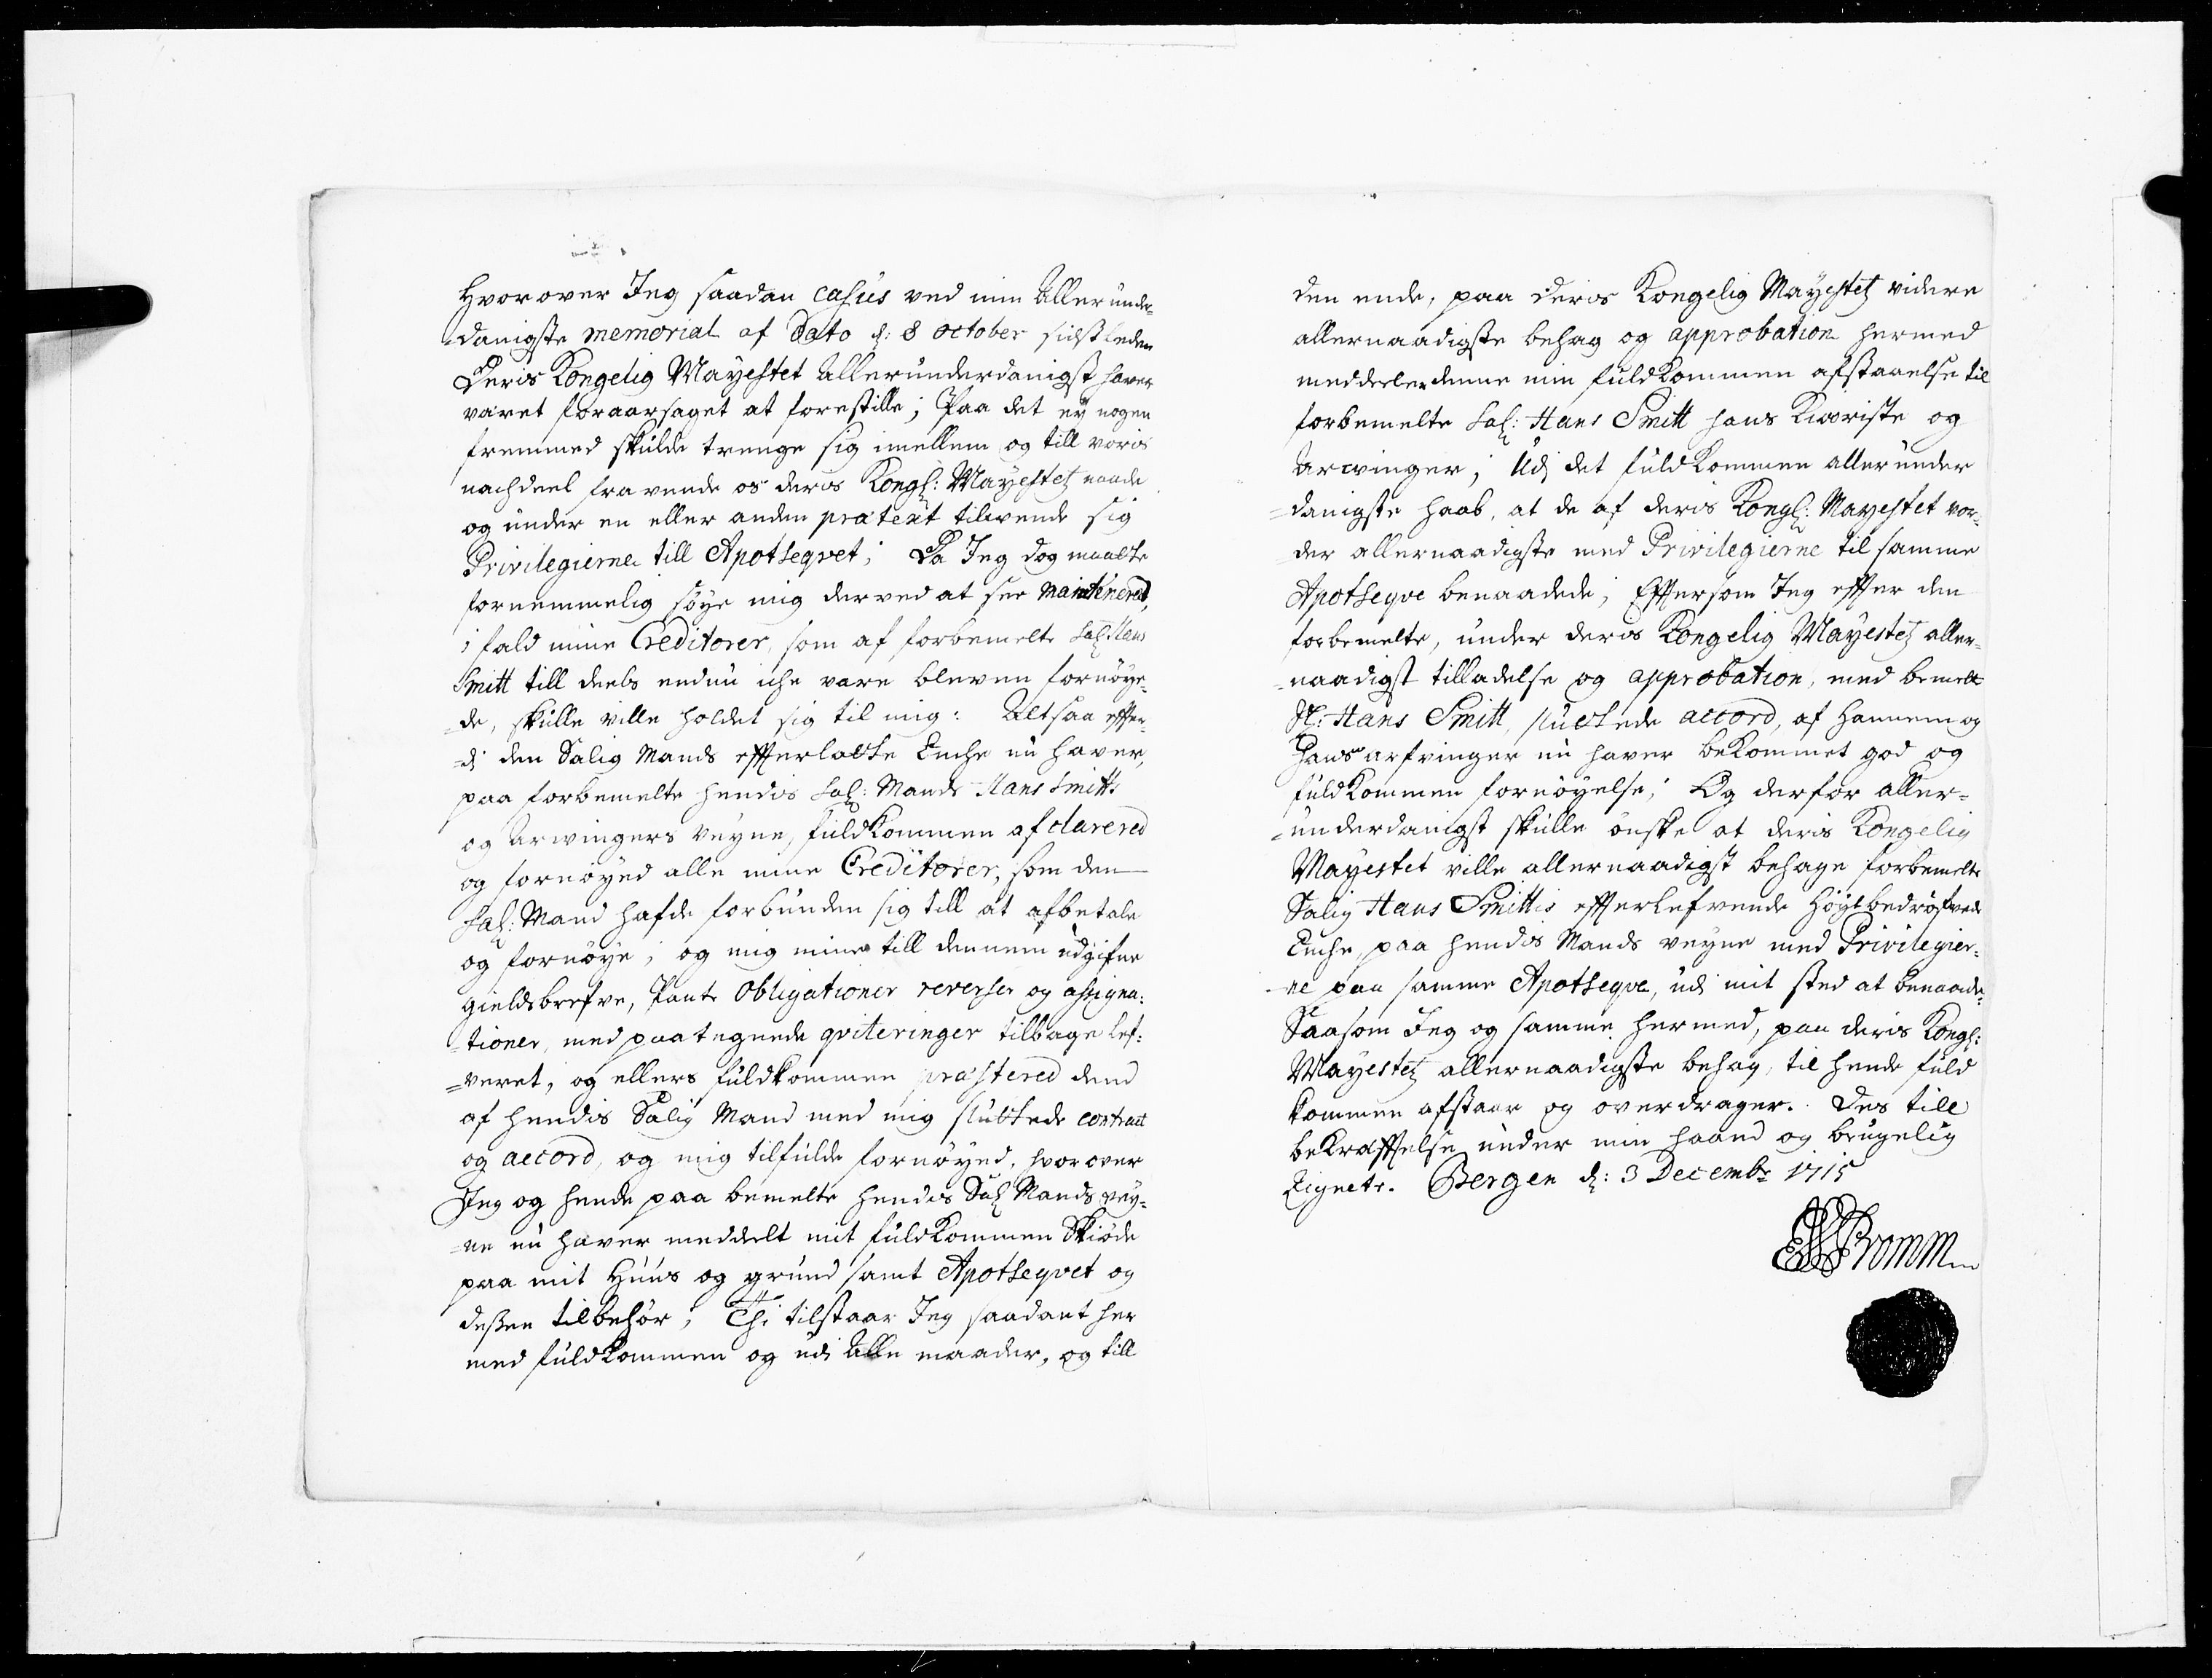 Hvorover Jeg saadan casus ved min Allerunde-
danigste memorial af Dato d: 8 october sidstleden
Deris Kongelig Mayestet Allerunderdanigst haver
været foraarsaget at forestille; Paa det ey nogen
fremmed skulde trenge sig imellem og till voris
nachdeel fravende os deris Kongl: Mayestetz naade
og under en eller anden prætext tilvende sig
Privilegierne till Apotheqvet; Da Jeg dog maatte
fornemmelig søge mig derved at see mainteneret,
i fald mine Creditorer, som af forbemelte Sal: Hans
Smitt till deels endnu iche vare bleven fornøye-
de, skulle ville holdet sig til mig: Altsaa effter-
di den Salig Mands effterlatte Enche nu haver,
paa forbemelte hendis Sal: Mands Hans Smitts
og Arvingers veyne, fuldkommen afclarered
og fornøyed alle mine Creditorer, som den
Sal: Mand hafde forbunden sig till at afbetale
og fornøye; og mig mine till dennem udgifne
gieldsbrefve, Pante Obligationer reverser og assigna-
tioner, med paategnede qviteringer tilbage lef-
veret, og ellers fuldkommen præstered dend
af hendis Salig Mand med mig sluttede contract
og accord, og mig tilfulde fornøyed, hvorover
Jeg og hende paa bemelte hendis Sal: Mands vey-
ne nu haver meddelt mit fuldkommen Skiøde
paa mit Huus og grund samt Apotheqvet og
dessen tilbehør; Thi tilstaar Jeg saadant her
med fuldkommen og udi Alle maader, og till
den ende, paa deris Kongelig Mayestetz videre
allernaadigste behag og approbation hermed
meddeeler denne min fuldkommen afstaaelse til
forbemelte Sal: Hans Smitt hans Kieriste og
Arvinger; Udj det fuldkommen allerunder
danigste haab, at de af deris Kongl: Mayestet vor-
der allernaadigste med Privilegierne til samme
Apotheqve benaadede; Efftersom Jeg effter den
forbemelte, under deris Kongelig Mayestetz aller-
naadigst tilladelse og approbation, med bemelte
Sl: Hans Smitt, sluttede accord, af Hannem og
Hans arfvinger nu haver bekommet god og
fuldkommen fornøyelse; Og derfor aller-
underdanigst skulle ønske at deris Kongelig
Mayestet ville allernaadigst behage forbemelte
Salig Hans Smittis effterlefvende høystbedrøfvede
Enche, paa hendis Mands veyne med Privilegier-
ne paa samme Apotheqve, udi mit sted at benaade.
Saasom Jeg og samme hermed, paa deris Kongl:
Mayestetz allernaadigste behag, til hende fuld
kommen afstaar og overdrager. Des till
bekræfftelse under min haand og brugelig
Zignete. Bergen d: 3 Decembr 1715